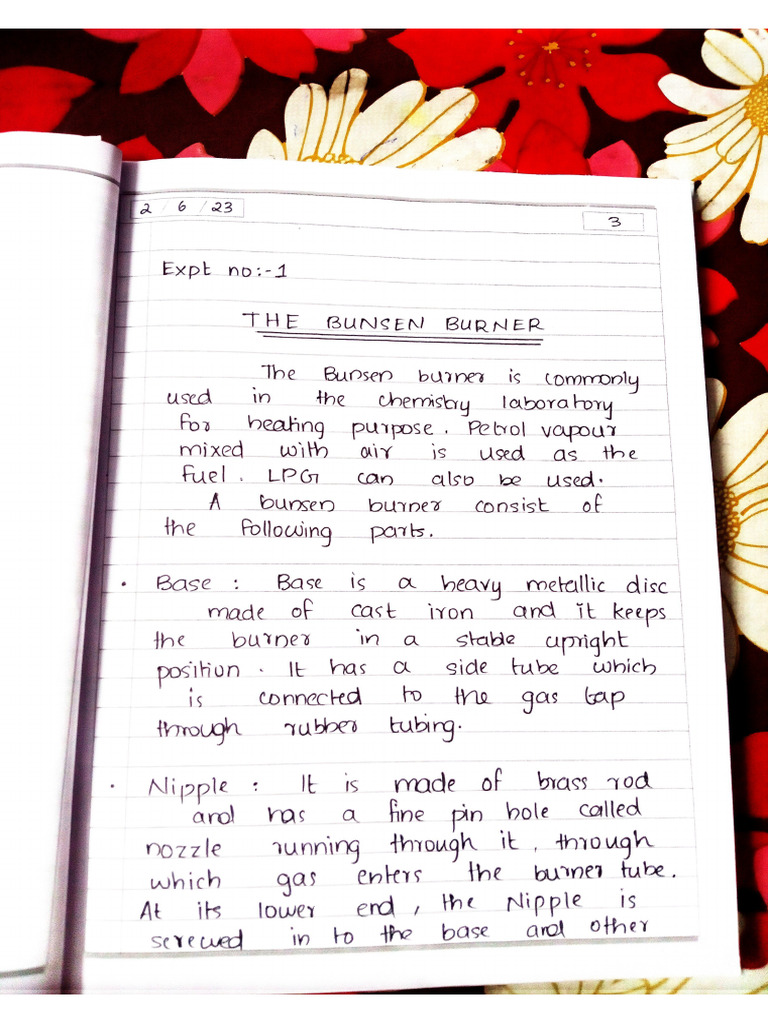 2 / 6 / 23
3
Expt no:-1
THE BUNSEN BURNER
The Bunsen burner is commonly
used in the chemistry laboratory
for heating purpose. Petrol vapour
mixed with air is used as the
fuel. LPG can also be used.
A bunsen burner consist of
the following parts.
• Base : Base is a heavy metallic disc
made of cast iron and it keeps
the burner in a stable upright
position. It has a side tube which
is connected to the gas tap
through rubber tubing.
• Nipple : It is made of brass rod
and has a fine pin hole called
nozzle running through it, through
which gas enters the burner tube.
At its lower end, the Nipple is
screwed in to the base and other